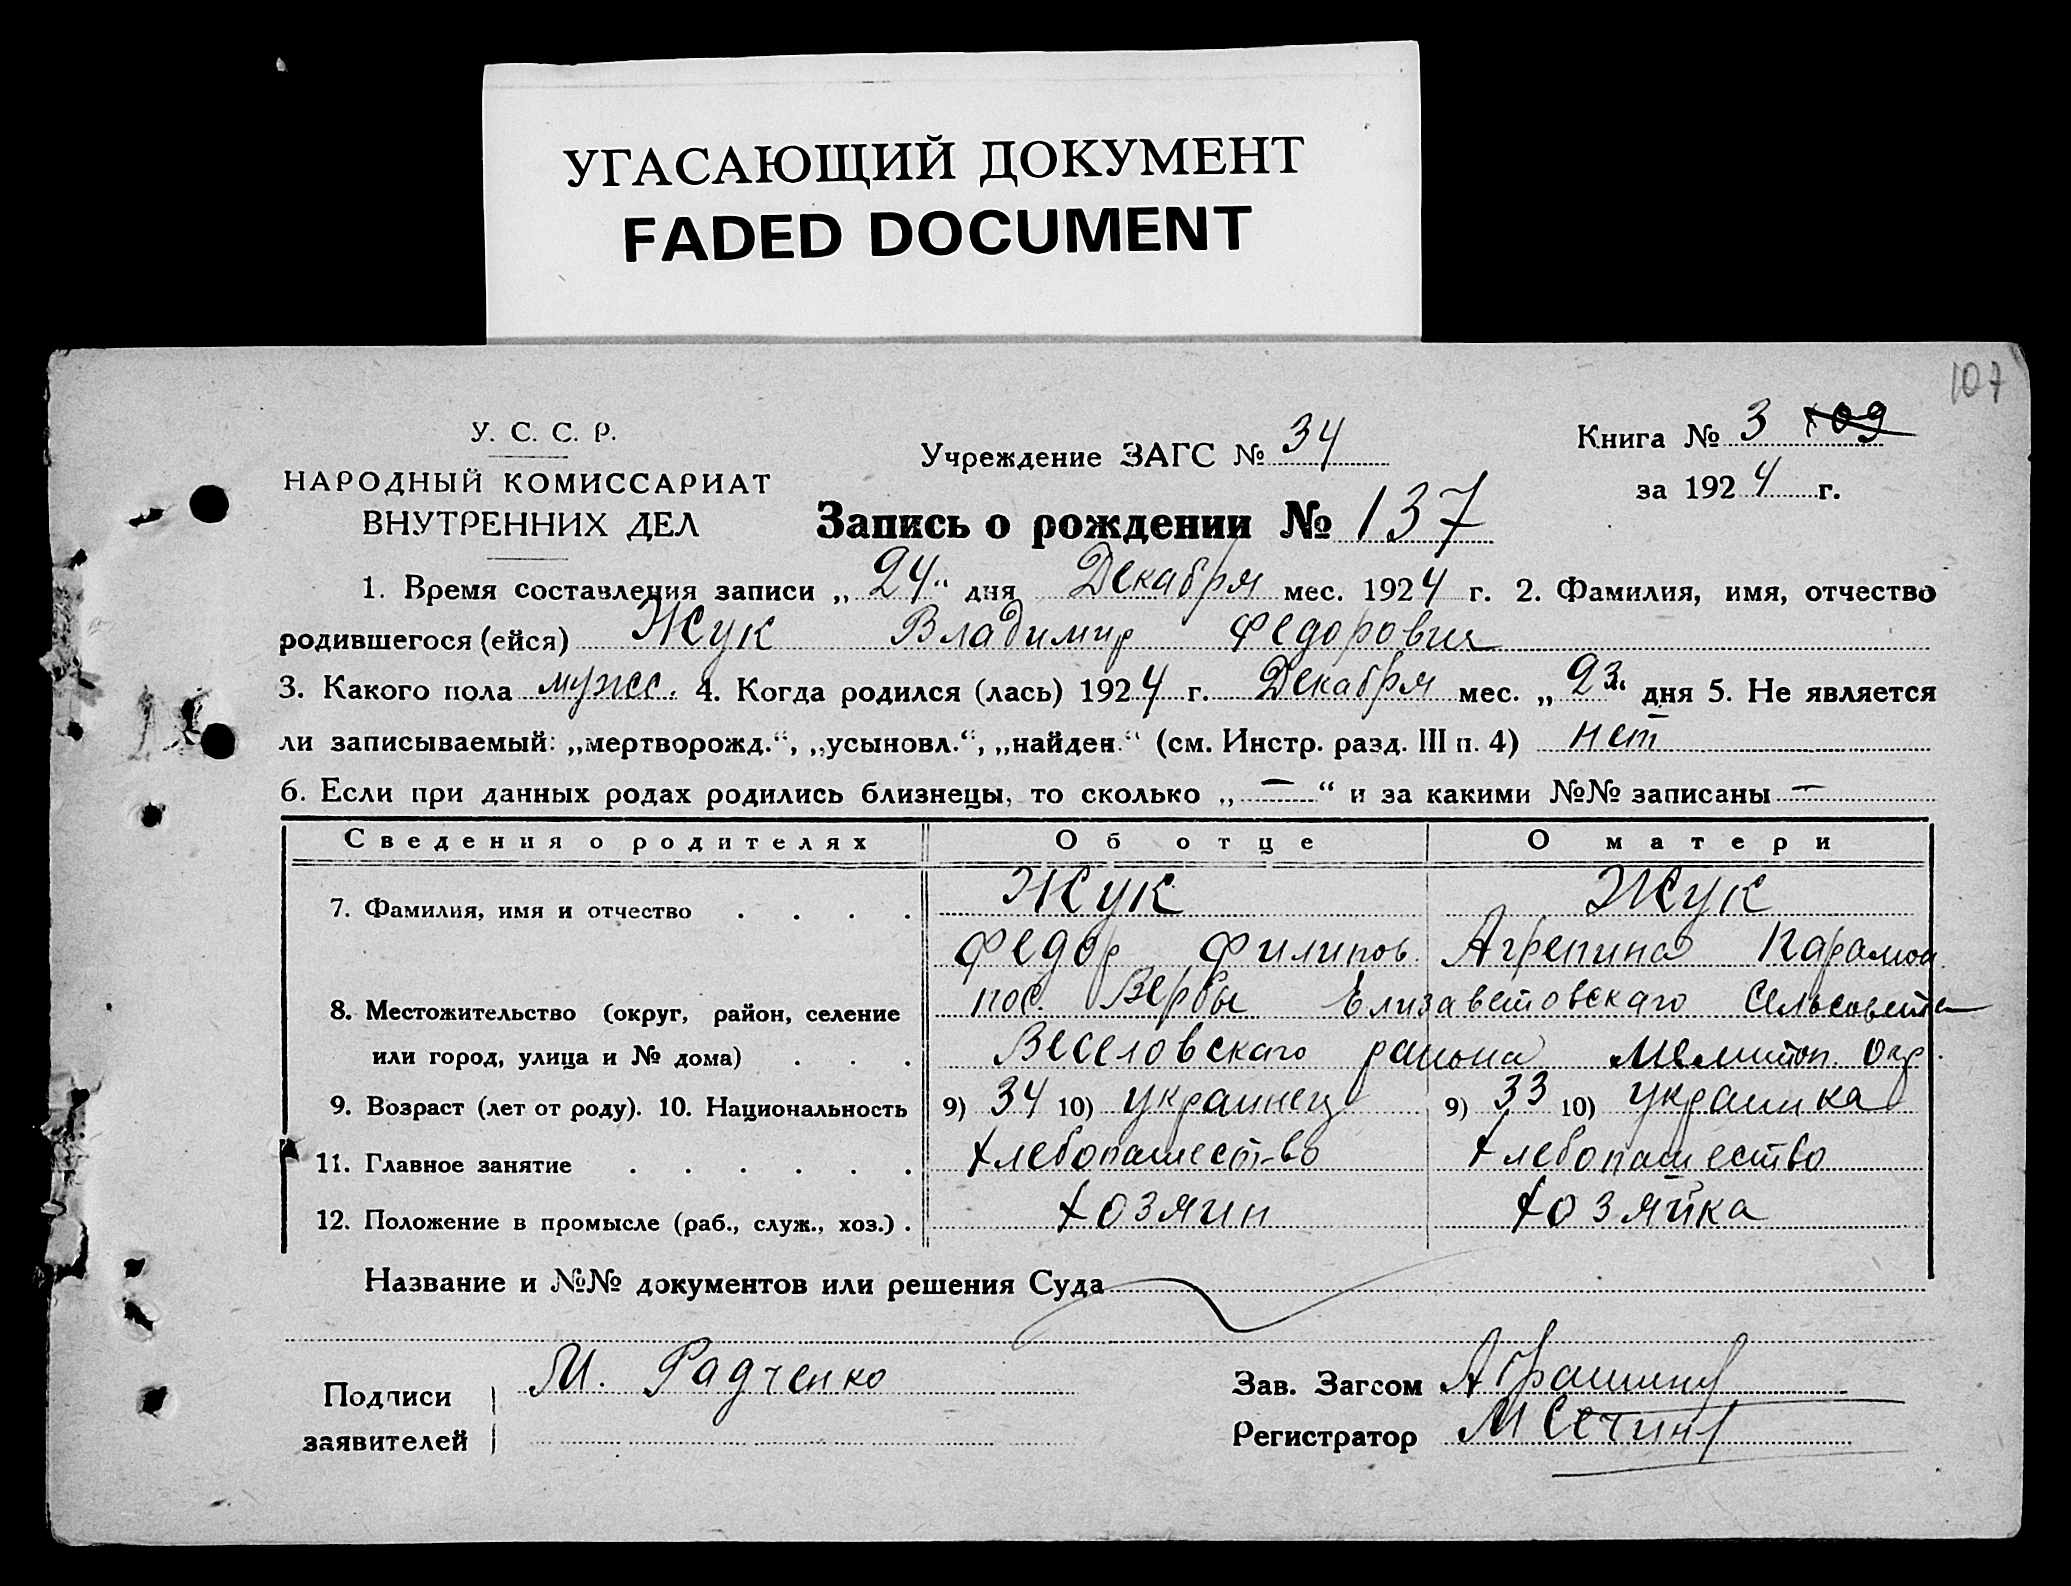 УГАСАЮЩИЙ ДОКУМЕНТ
FADED DOCUMENT
107
У. С. С. Р.
НАРОДНЫЙ КОМИССАРИАТ
ВНУТРЕННИХ ДЕЛ
Учреждение ЗАГС № 34
Книга № 3 109
за 1924 г.
Запись о рождении № 137
1. Время составления записи „24“ дня Декабря мес. 1924 г. 2. Фамилия, имя, отчество
родившегося (ейся) Жук Владимир Федорович
3. Какого пола мужс. 4. Когда родился (лась) 1924 г. Декабря мес. „23“ дня 5. Не является
ли записываемый: „мертворожд.“, „усыновл.“, „найден.“ (см. Инстр. разд. III п. 4) нет
6. Если при данных родах родились близнецы, то сколько „—“ и за какими №№ записаны —
Сведения о родителях Об отце О матери
7. Фамилия, имя и отчество . . . . Жук Жук
Федор Филипов. Агрепина
8. Местожительство (округ, район, селение пос. Вербы Елизаветовскаго Сельсовета
или город, улица и № дома) . . . Веселовскаго района Мелитоп. Окр.
9. Возраст (лет от роду). 10. Национальность 9) 34 10) украинец 9) 33 10) украинка
11. Главное занятие . . . . . . Хлебопашество Хлебопашество
12. Положение в промысле (раб., служ., хоз.) . Хозяин Хозяйка
Название и №№ документов или решения Суда
Подписи М. Радченко
заявителей
Зав. Загсом
Регистратор